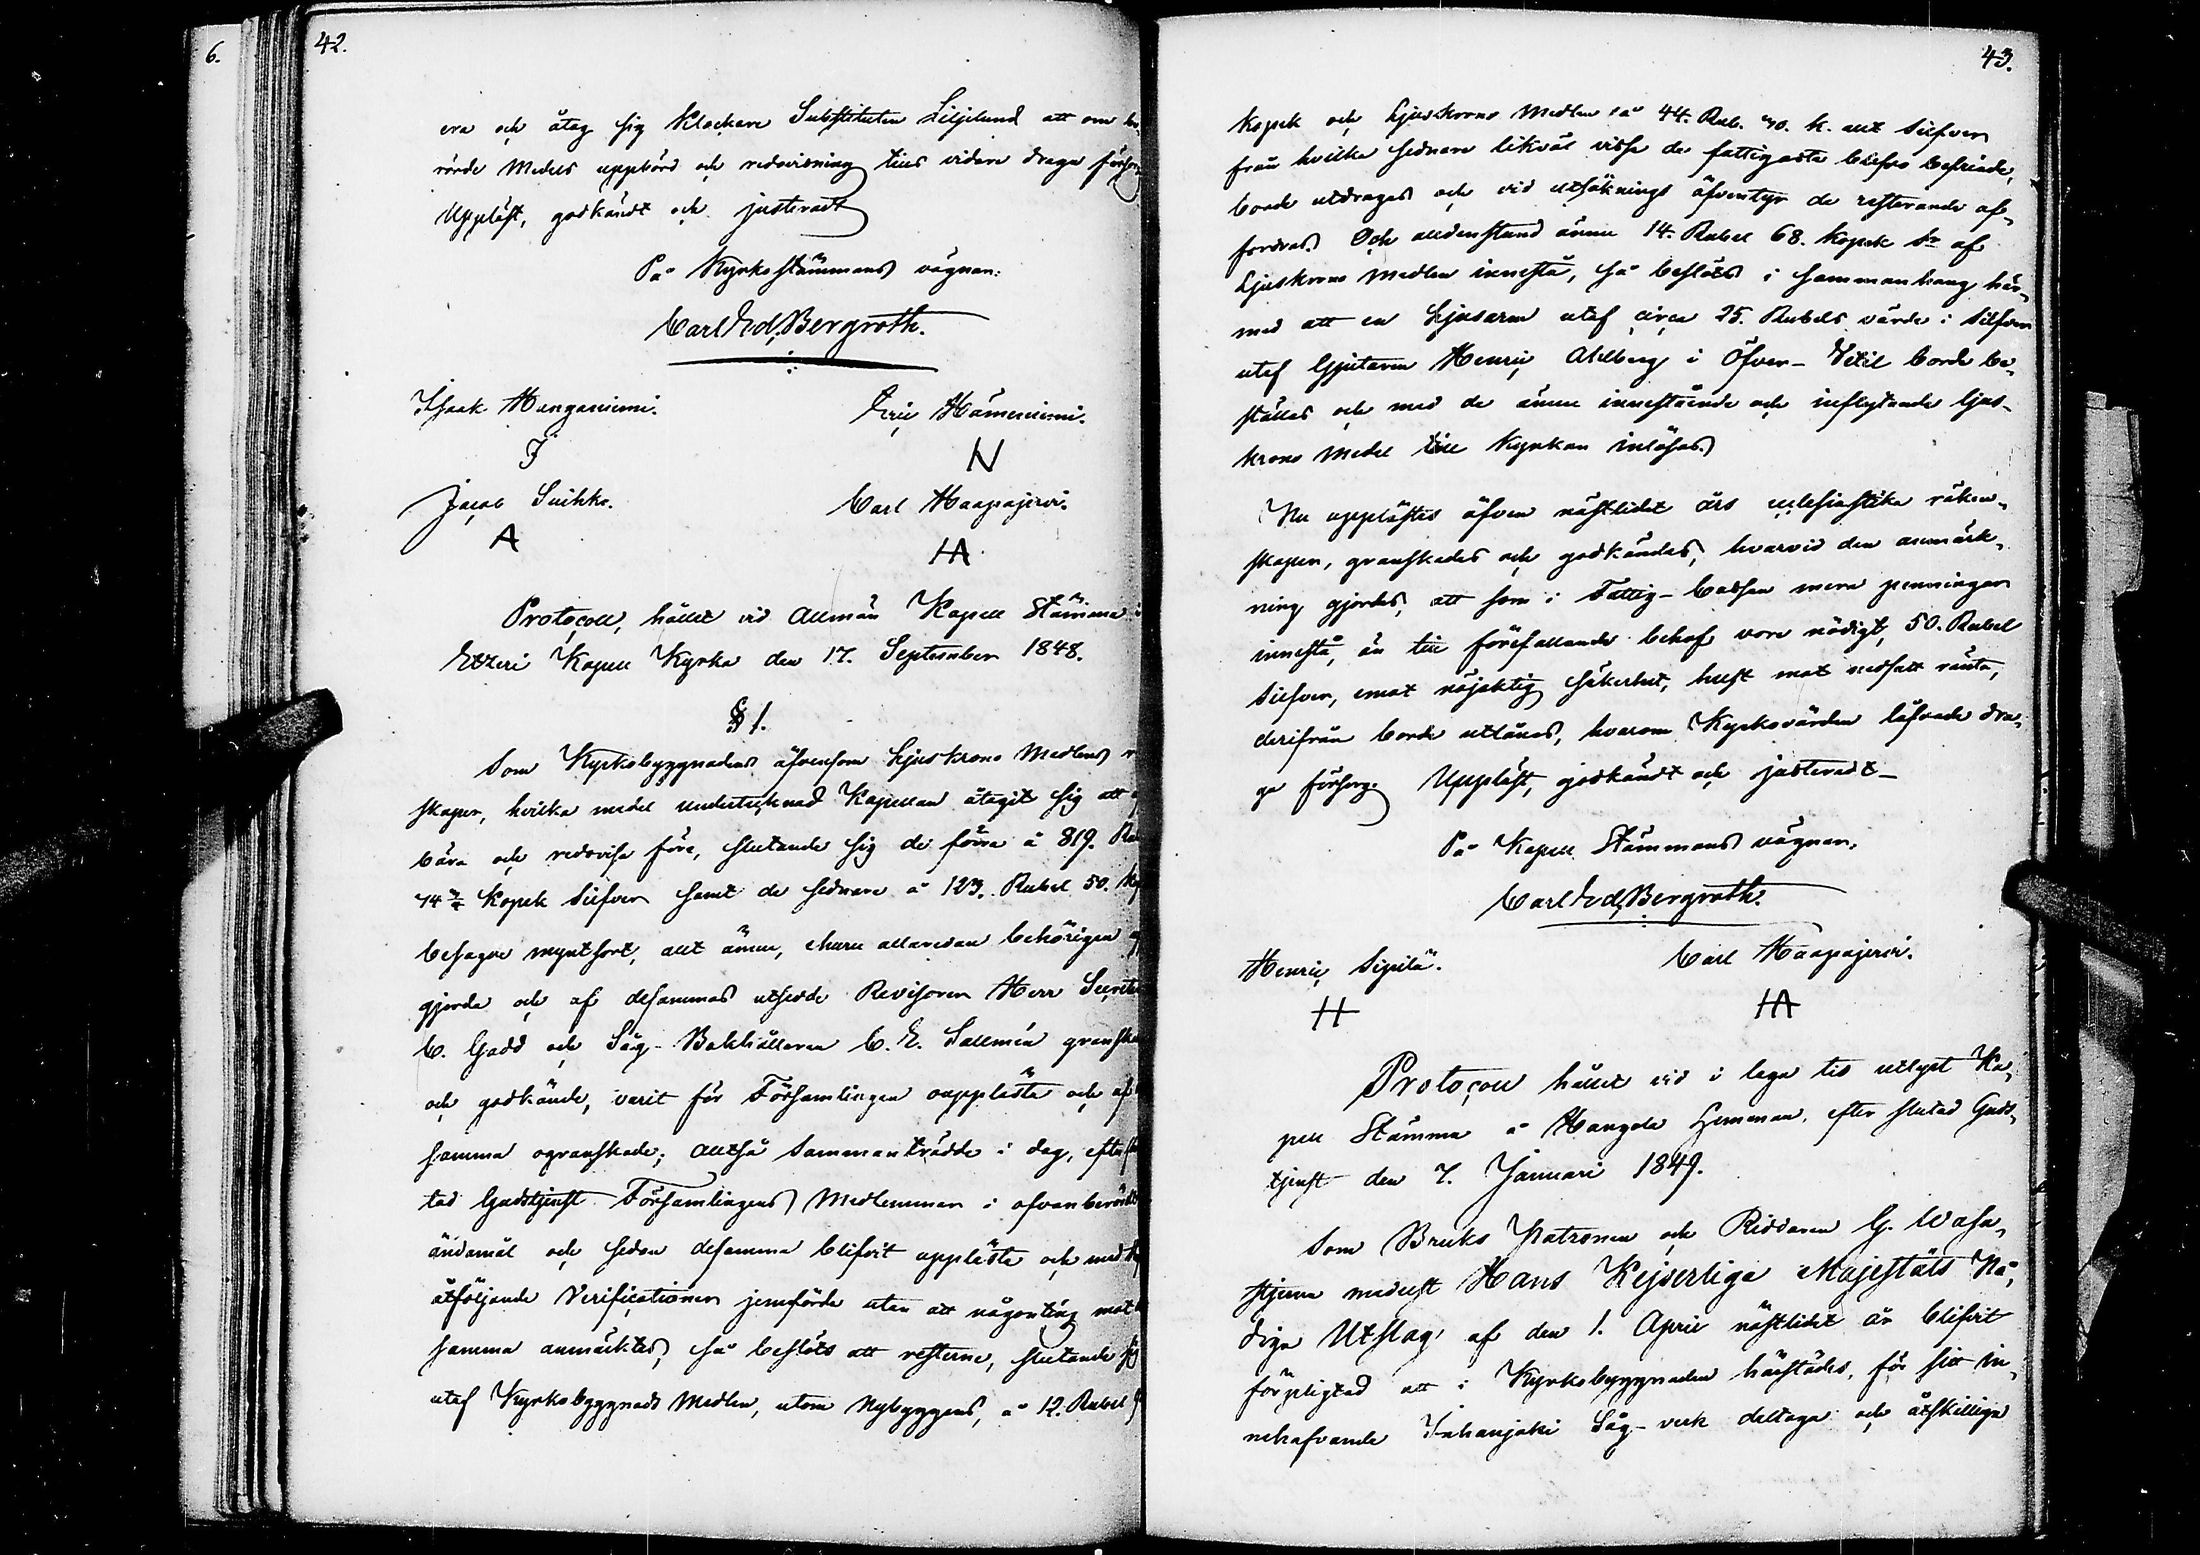 6.
42.
era och åtog sig Klockare Substituten Liljelund att om be-
rörde Medels uppbörd och redovisning till vidare draga försorg
Uppläst, godkändt och justeradt
På Kyrkostämmans vägnar:
Carl Ed. Bergroth.
Isaak Hanganiemi.
Eric Hämeniemi.
I
N
Jacob Suikka.
Carl Haapajervi.
A
HA
Protocoll, hållit vid Allmän Kapell Stämma i
Etzeri Kapell Kyrka den 17. September 1848.
§ 1.
Som Kyrkobyggnadens äfvensom Ljuskrons Medlens
skaper, hvilka medel undertecknad Kapellan åtagit sig att
bära och redovisa före, slutande sig de förra å 819. Rubel
74 Kopek Silfver samt de sednare å 123. Rubel 50.
besagde myntsort, allt ännu, ehuru allaredan behörigen
gjorda och af desammas utsedde Revisorer Herr Secreter
C. Gadd och Såg-Bokhållaren C. E. Sallmén granska
och godkände, varit för Församlingen oupplästa och af
samma ogranskade; Alltså Sammanträdde i dag, efter slu
tad Gudstjenst Församlingens Medlemmar i ofvanberörde
ändamål och sedan desamma blifvit upplästa och med
åtföljande Verificationer jemförda utan att någonting mot
samma anmärktes, så beslöts att resterne, slutande sig
utaf Kyrkobyggnads Medlen, utom Nybyggens, å 12. Rubel
43.
Kopek och Ljuskrons Medlen å 44. Rub. 70. k. allt Silfver
från hvilka sednare likväl vissa de fattigaste blefvo befriade,
borde utdragas och vid utsöknings äfventyr de resterande af-
fordras. Och alldenstund ännu 14. Rubel 68. Kopek Sr af
Ljuskrons Medlen innestå, så beslöts i sammanhang här-
med att en Ljusarm utaf circa 25. Rubels värde i Silfver
utaf Gjutaren Henric Ahlberg i Öfver-Vetil borde be-
ställas och med de ännu innestående och inflytande ljus-
krons Medel till Kyrkan inlösas.
Nu upplästes äfven nästlidet års ecclesiastika räken-
skaper, granskades och godkändes, hvarvid den anmärk-
ning gjordes, att som i Fattig-Cassan mera penningar
innestå, än till förefallande behof vore nödigt, 50. Rubel
Silfver, emot nöjaktig säkerhet, helst mot nedsatt ränta,
derifrån borde utlånas, hvarom Kyrkovärden låfvade dra-
ga försorg. Uppläst, godkändt och justeradt—
På Kapell Stämmans vägnar,
Carl Ed. Bergroth.
Henric Sipilä.
Carl Haapajervi.
H
HA
Protocoll hållit vid i laga tid utlyst Ka-
pell Stämma å Hangola Hemman, efter slutad Guds-
tjenst den 7. Januari 1849.
Som Bruks Patronen och Riddaren G. Wasa-
stjerna medelst Hans Kejserliga Majestäts Nå-
diga Utslag af den 1. April nästlidit år blifvit
förpligtad att i Kyrkobyggnaden härstädes, för sitt in-
nehafvande Inhanjoki Såg-verk deltaga och åtskilliga